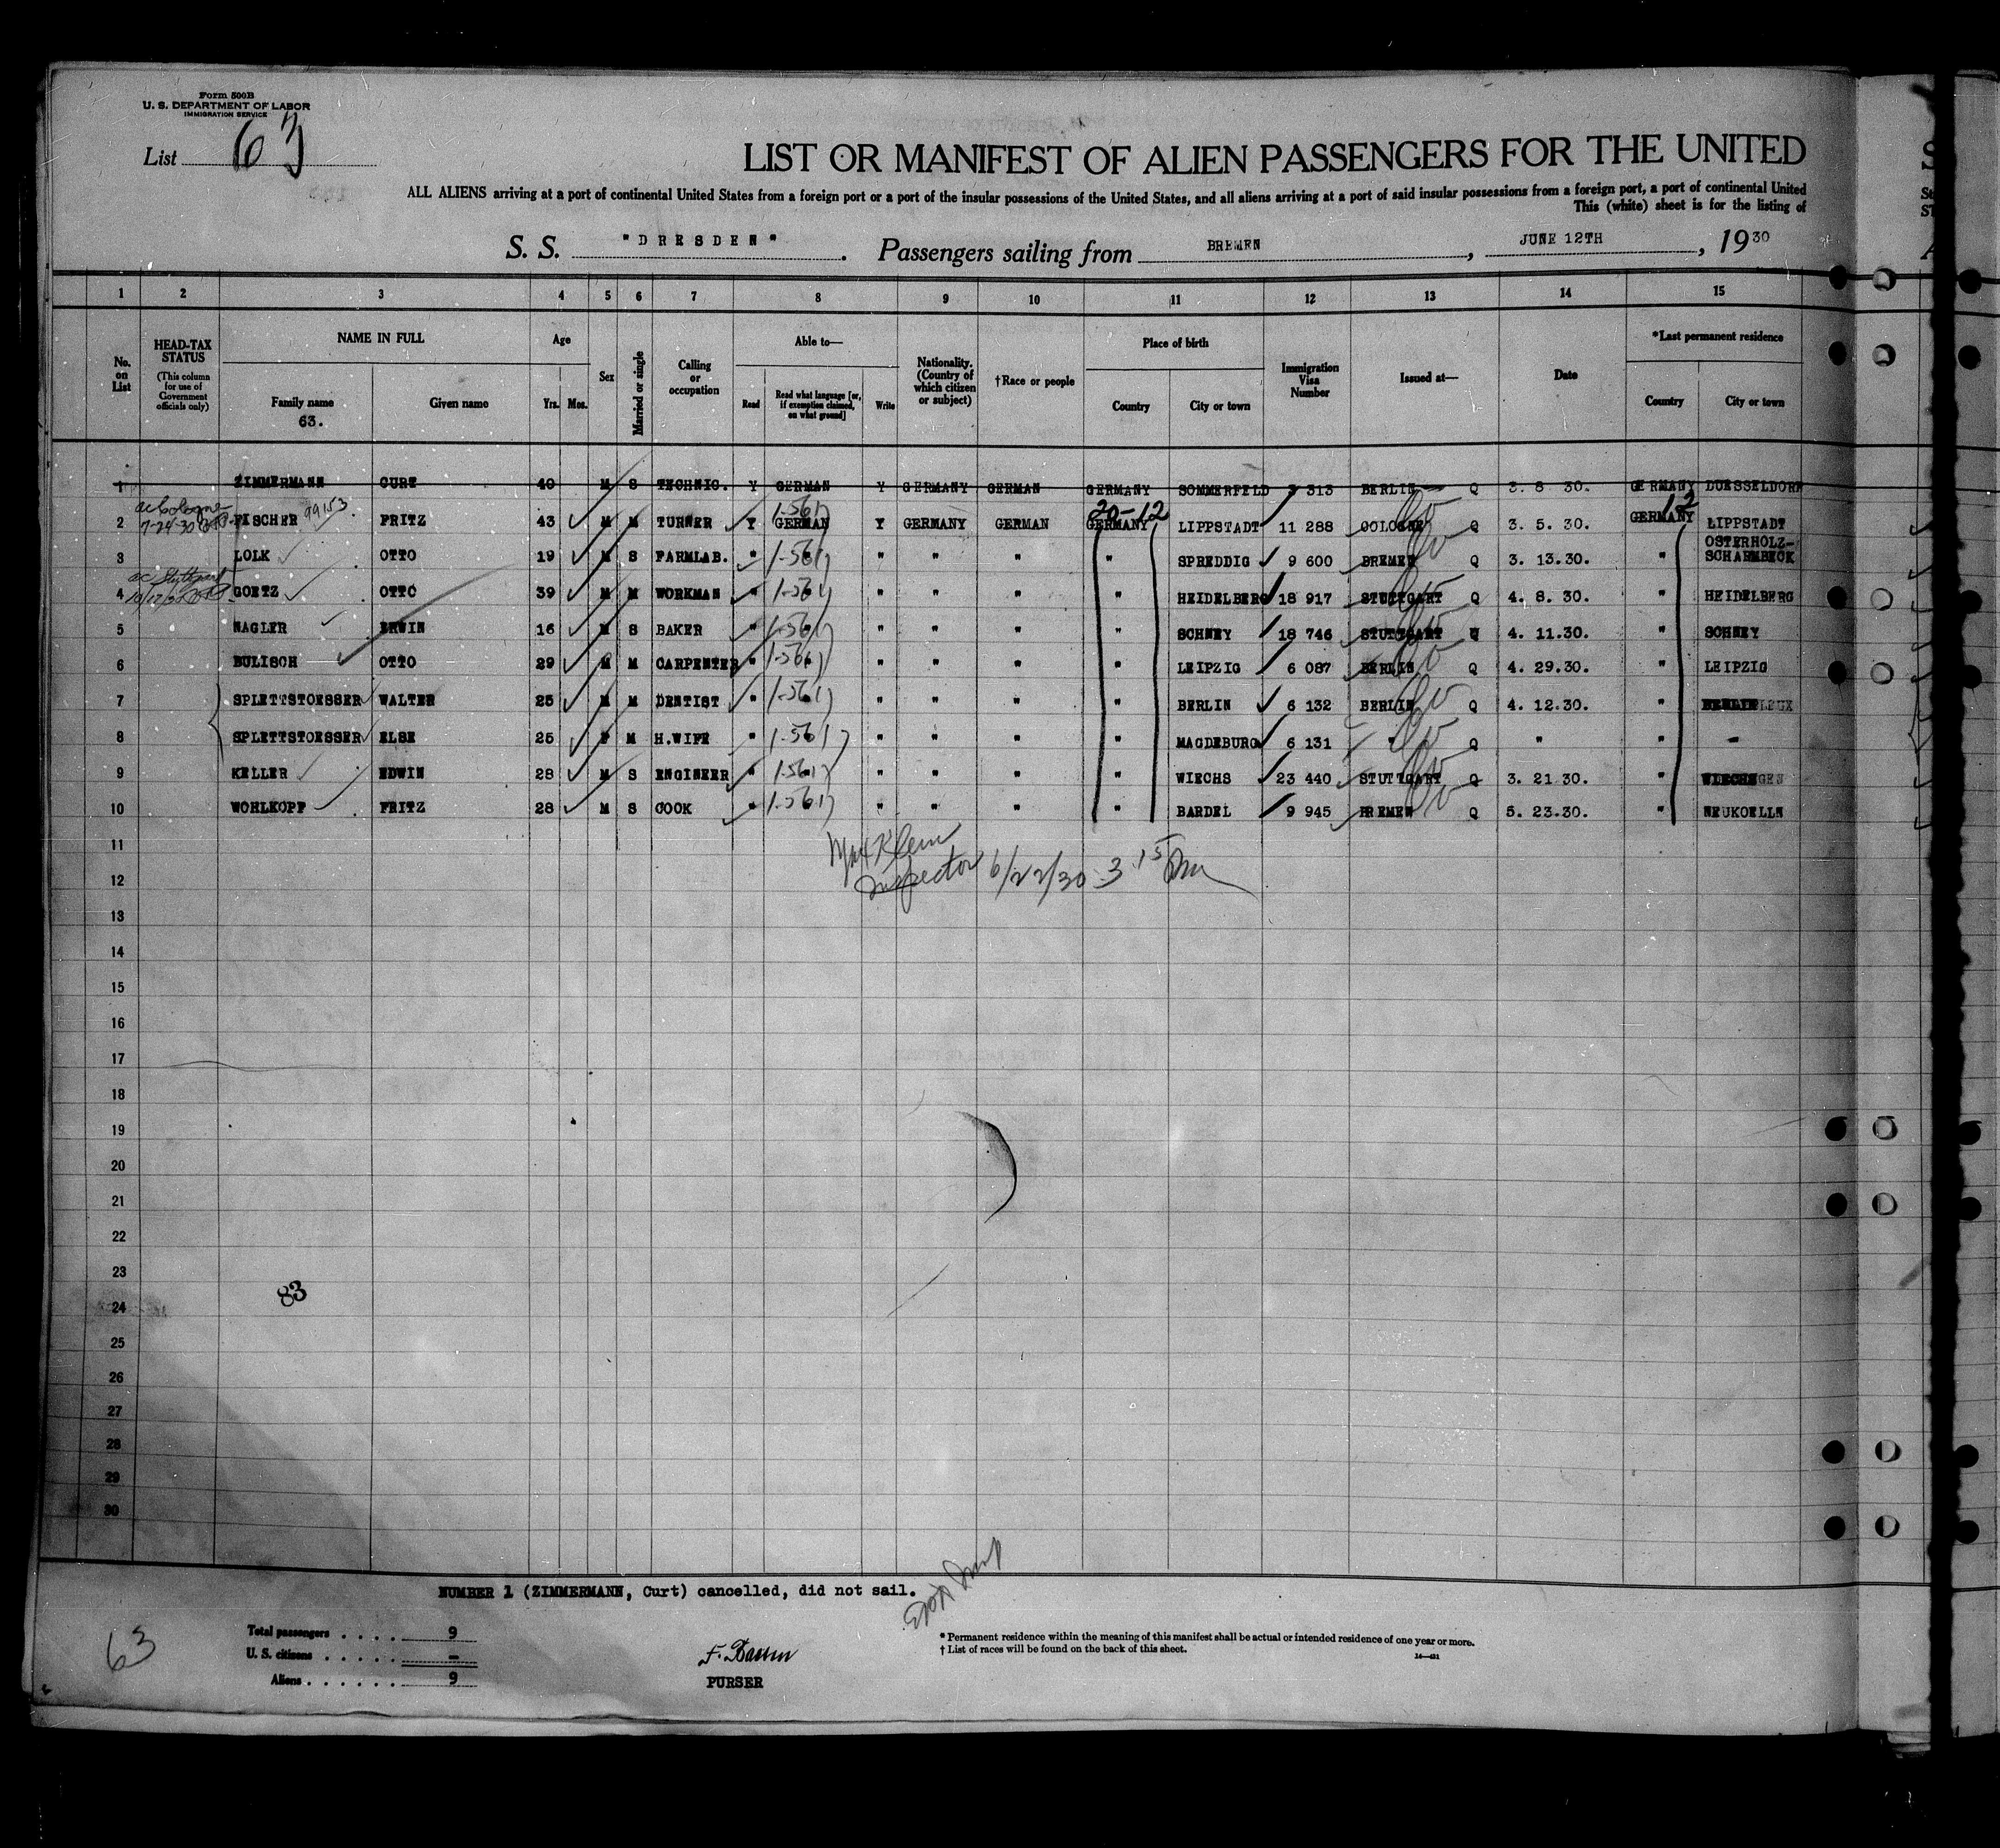 Form 500B
U. S. DEPARTMENT OF LABOR
IMMIGRATION SERVICE
List 63
LIST OR MANIFEST OF ALIEN PASSENGERS FOR THE UNITED
ALL ALIENS arriving at a port of continental United States from a foreign port or a port of the insular possessions of the United States, and all aliens arriving at a port of said insular possessions from a foreign port, a port of continental United
This (white) sheet is for the listing of
S. S. "DRESDEN". Passengers sailing from BREMEN, JUNE 12TH, 1930
1 2 3 4 5 6 7 8 9 10 11 12 13 14 15
No. on List
HEAD-TAX STATUS (This column for use of Government officials only)
NAME IN FULL
Family name
63.
Given name
Age
Yrs. Mos.
Sex
Married or single
Calling or occupation
Able to—
Read
Read what language [or, if exemption claimed, on what ground]
Write
Nationality. (Country of which citizen or subject)
†Race or people
Place of birth
Country
City or town
Immigration Visa Number
Issued at—
Date
*Last permanent residence
Country
City or town
1 ZIMMERMANN CURT 40 M S TECHNIC. Y GERMAN Y GERMANY GERMAN GERMANY SOMMERFELD 313 BERLIN Q 3. 8 30. GERMANY DUESSELDORF
20-12 12
2 7-24-30 FISCHER 99153 FRITZ 43 M M TURNER Y GERMAN Y GERMANY GERMAN GERMANY LIPPSTADT 11 288 COLOGNE Q 3. 5. 30. GERMANY LIPPSTADT
3 LOLK OTTO 19 M S FARMLAB. " " " " " SPREDDIG 9 600 BREMEN Q 3. 13.30. " OSTERHOLZ-SCHARMBECK
4 GOETZ OTTO 39 M M WORKMAN " " " " " " HEIDELBERG 18 917 STUTTGART Q 4. 8. 30. " HEIDELBERG
5 NAGLER ERWIN 16 M S BAKER " " " " " " SCHNEY 18 746 STUTTGART Q 4. 11.30. " SCHNEY
6 BULISCH OTTO 29 M M CARPENTER " " " " " " LEIPZIG 6 087 BERLIN Q 4. 29.30. " LEIPZIG
7 SPLETTSTOESSER WALTER 25 M M DENTIST " " " " " " BERLIN 6 132 BERLIN Q 4. 12.30. "
8 SPLETTSTOESSER ELSE 25 F M H.WIFE " " " " " MAGDEBURG 6 131 " Q " " -
9 KELLER EDWIN 28 M S ENGINEER " " " " " " WIECHS 23 440 STUTTGART Q 3. 21 30. "
10 WOHLKOPF FRITZ 28 M S COOK " " " " " " BARDEL 9 945 BREMEN Q 5. 23.30. " NEUKOELLN
11
Max Klein
Inspector 6/22/30 3 15 Pm
12
13
14
15
16
17
18
19
20
21
22
23
83
24
25
26
27
28
29
30
NUMBER 1 (ZIMMERMANN, Curt) cancelled, did not sail.
63
Total passengers . . . . 9
U. S. citizens . . . . . -
Aliens . . . . . . 9
PURSER
* Permanent residence within the meaning of this manifest shall be actual or intended residence of one year or more.
† List of races will be found on the back of this sheet.